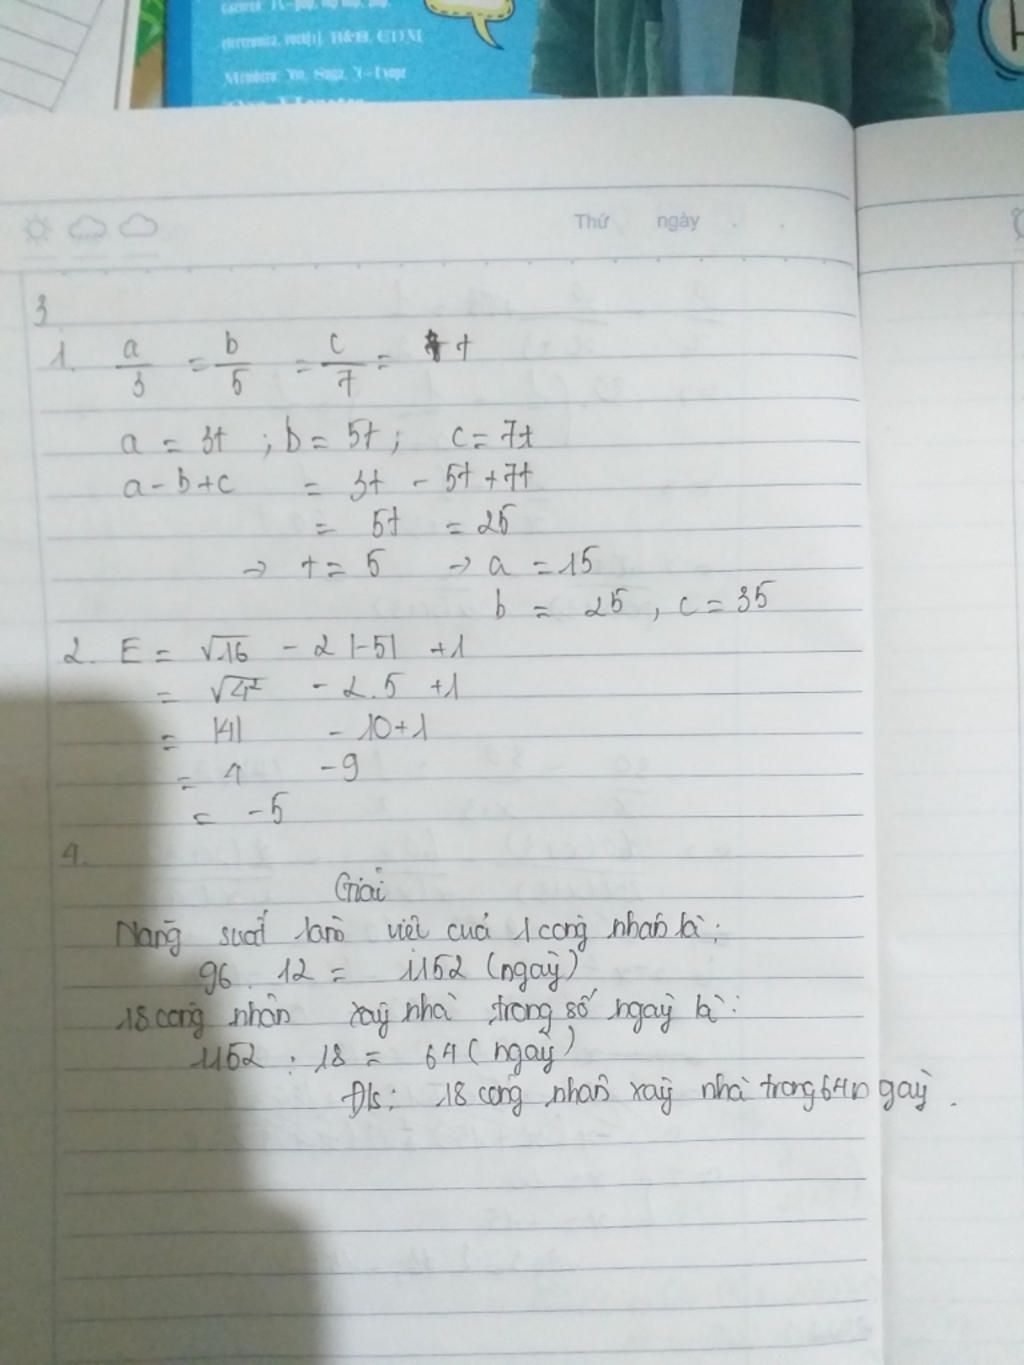 electronica, rock[1], R&B, EDM
Members: Vin, Suga, J-Hope
Thứ ngày
3
1. a/3 = b/5 = c/7 = t
a = 3t ; b = 5t ; c = 7t
a - b + c = 3t - 5t + 7t
= 5t = 25
-> t = 5 -> a = 15
b = 25 , c = 35
2. E = √16 - 2 |-5| + 1
= √4² - 2.5 + 1
= |4| - 10 + 1
= 4 - 9
= - 5
4.
Giải
Năng suất làm việc của 1 công nhân là :
96 . 12 = 1152 (ngày)
18 công nhân xây nhà trong số ngày là :
1152 : 18 = 64 ( ngày )
Đ/s : 18 công nhân xây nhà trong 64 ngày .